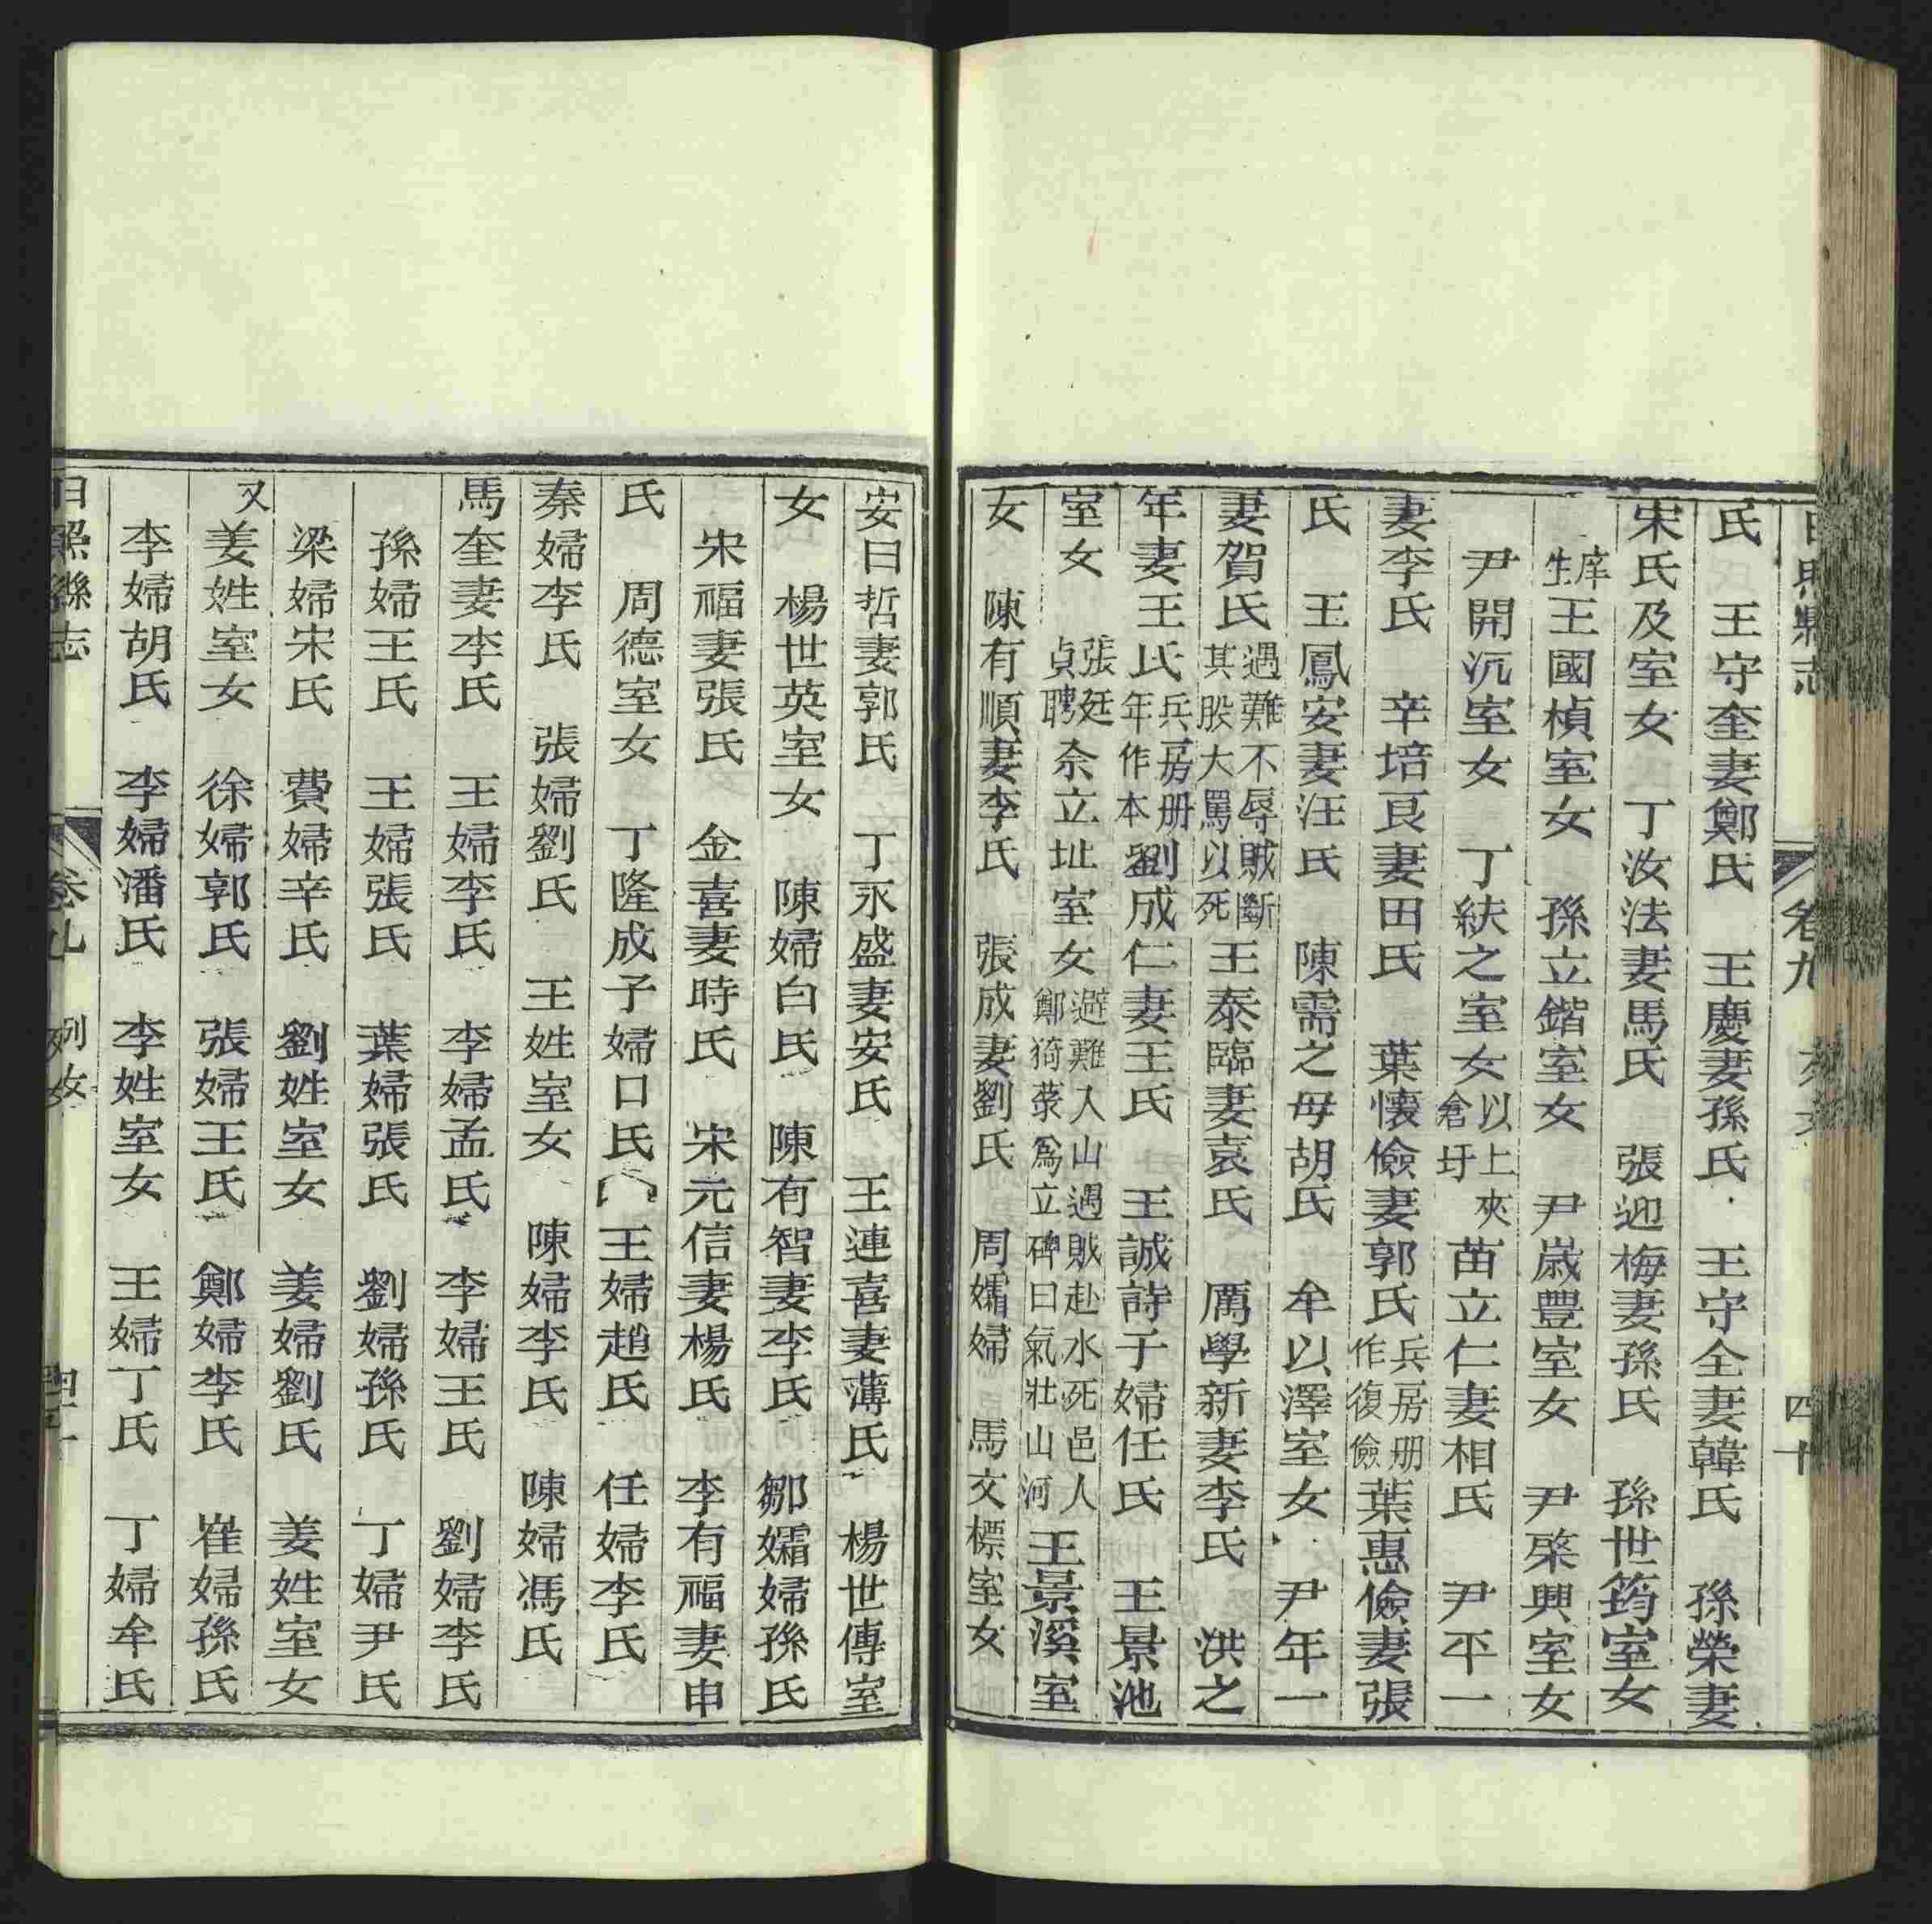 日照縣志 卷九 列女 四十
氏 王守奎妻鄭氏 王慶妻孫氏 王守全妻韓氏 孫榮妻
宋氏及室女 丁汝法妻馬氏 張迎梅妻孫氏 孫世筠室女
庠生王國楨室女 孫立鍇室女 尹歲豐室女 尹棨興室女
尹開沅室女 丁紩之室女以上夾倉圩 苗立仁妻相氏 尹平一
妻李氏 辛培艮妻田氏 葉懷儉妻郭氏兵房册作復儉 葉惠儉妻張
氏 王鳳安妻汪氏 陳需之母胡氏 牟以澤室女 尹年一
妻賀氏遇難不辱賊斷其股大罵以死 王泰臨妻袁氏 厲學新妻李氏 洪之
年妻王氏兵房册年作本 劉成仁妻王氏 王誠詩子婦任氏 王景池
室女張廷貞聘 佘立址室女避難入山遇賊赴水死邑人鄭猗菉爲立碑曰氣壯山河 王景溪室
女 陳有順妻李氏 張成妻劉氏 周孀婦 馬文標室女
安曰哲妻郭氏 丁永盛妻安氏 王連喜妻薄氏 楊世傳室
女 楊世英室女 陳婦白氏 陳有智妻李氏 鄒孀婦孫氏
宋福妻張氏 金喜妻時氏 宋元信妻楊氏 李有福妻申
氏 周德室女 丁隆成子婦口氏 王婦趙氏 任婦李氏
秦婦李氏 張婦劉氏 王姓室女 陳婦李氏 陳婦馮氏
馬奎妻李氏 王婦李氏 李婦孟氏 李婦王氏 劉婦李氏
孫婦王氏 王婦張氏 葉婦張氏 劉婦孫氏 丁婦尹氏
梁婦宋氏 費婦辛氏 劉姓室女 姜婦劉氏 姜姓室女
又姜姓室女 徐婦郭氏 張婦王氏 鄭婦李氏 崔婦孫氏
李婦胡氏 李婦潘氏 李姓室女 王婦丁氏 丁婦牟氏
日照縣志 卷九 列女 四十一